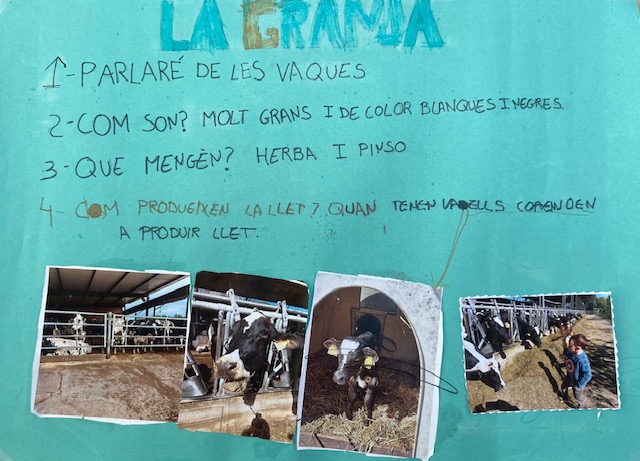 LA GRAMJA
1-PARLARÉ DE LES VAQUES
2-COM SON? MOLT GRANS I DE COLOR BLANQUES I NEGRES.
3-QUE MENGÈN? HERBA I PINSO
4-COM PRODUEIXEN LA LLET? QUAN TENEN VADELLS COMENDEN
A PRODUIR LLET.